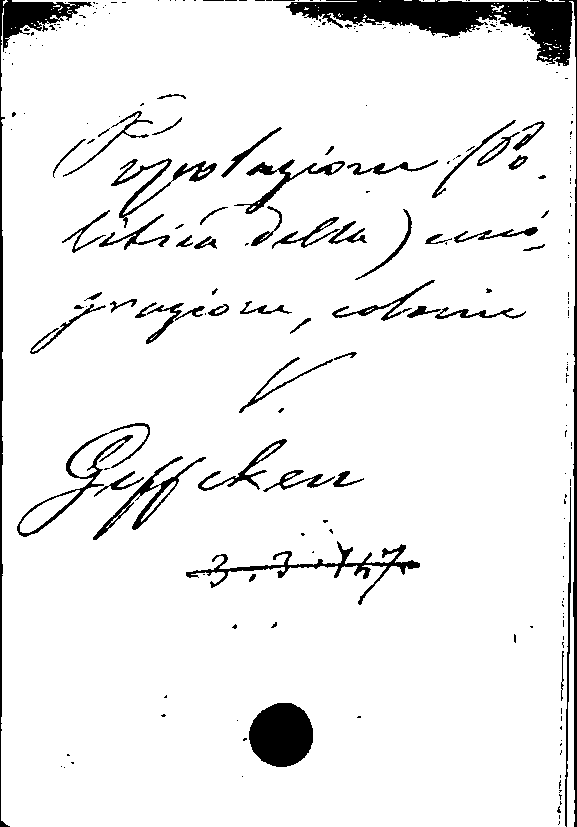 Popolazione (Po-
litica della) emi-
grazione, colonie
V.
Geffcken
3.3.